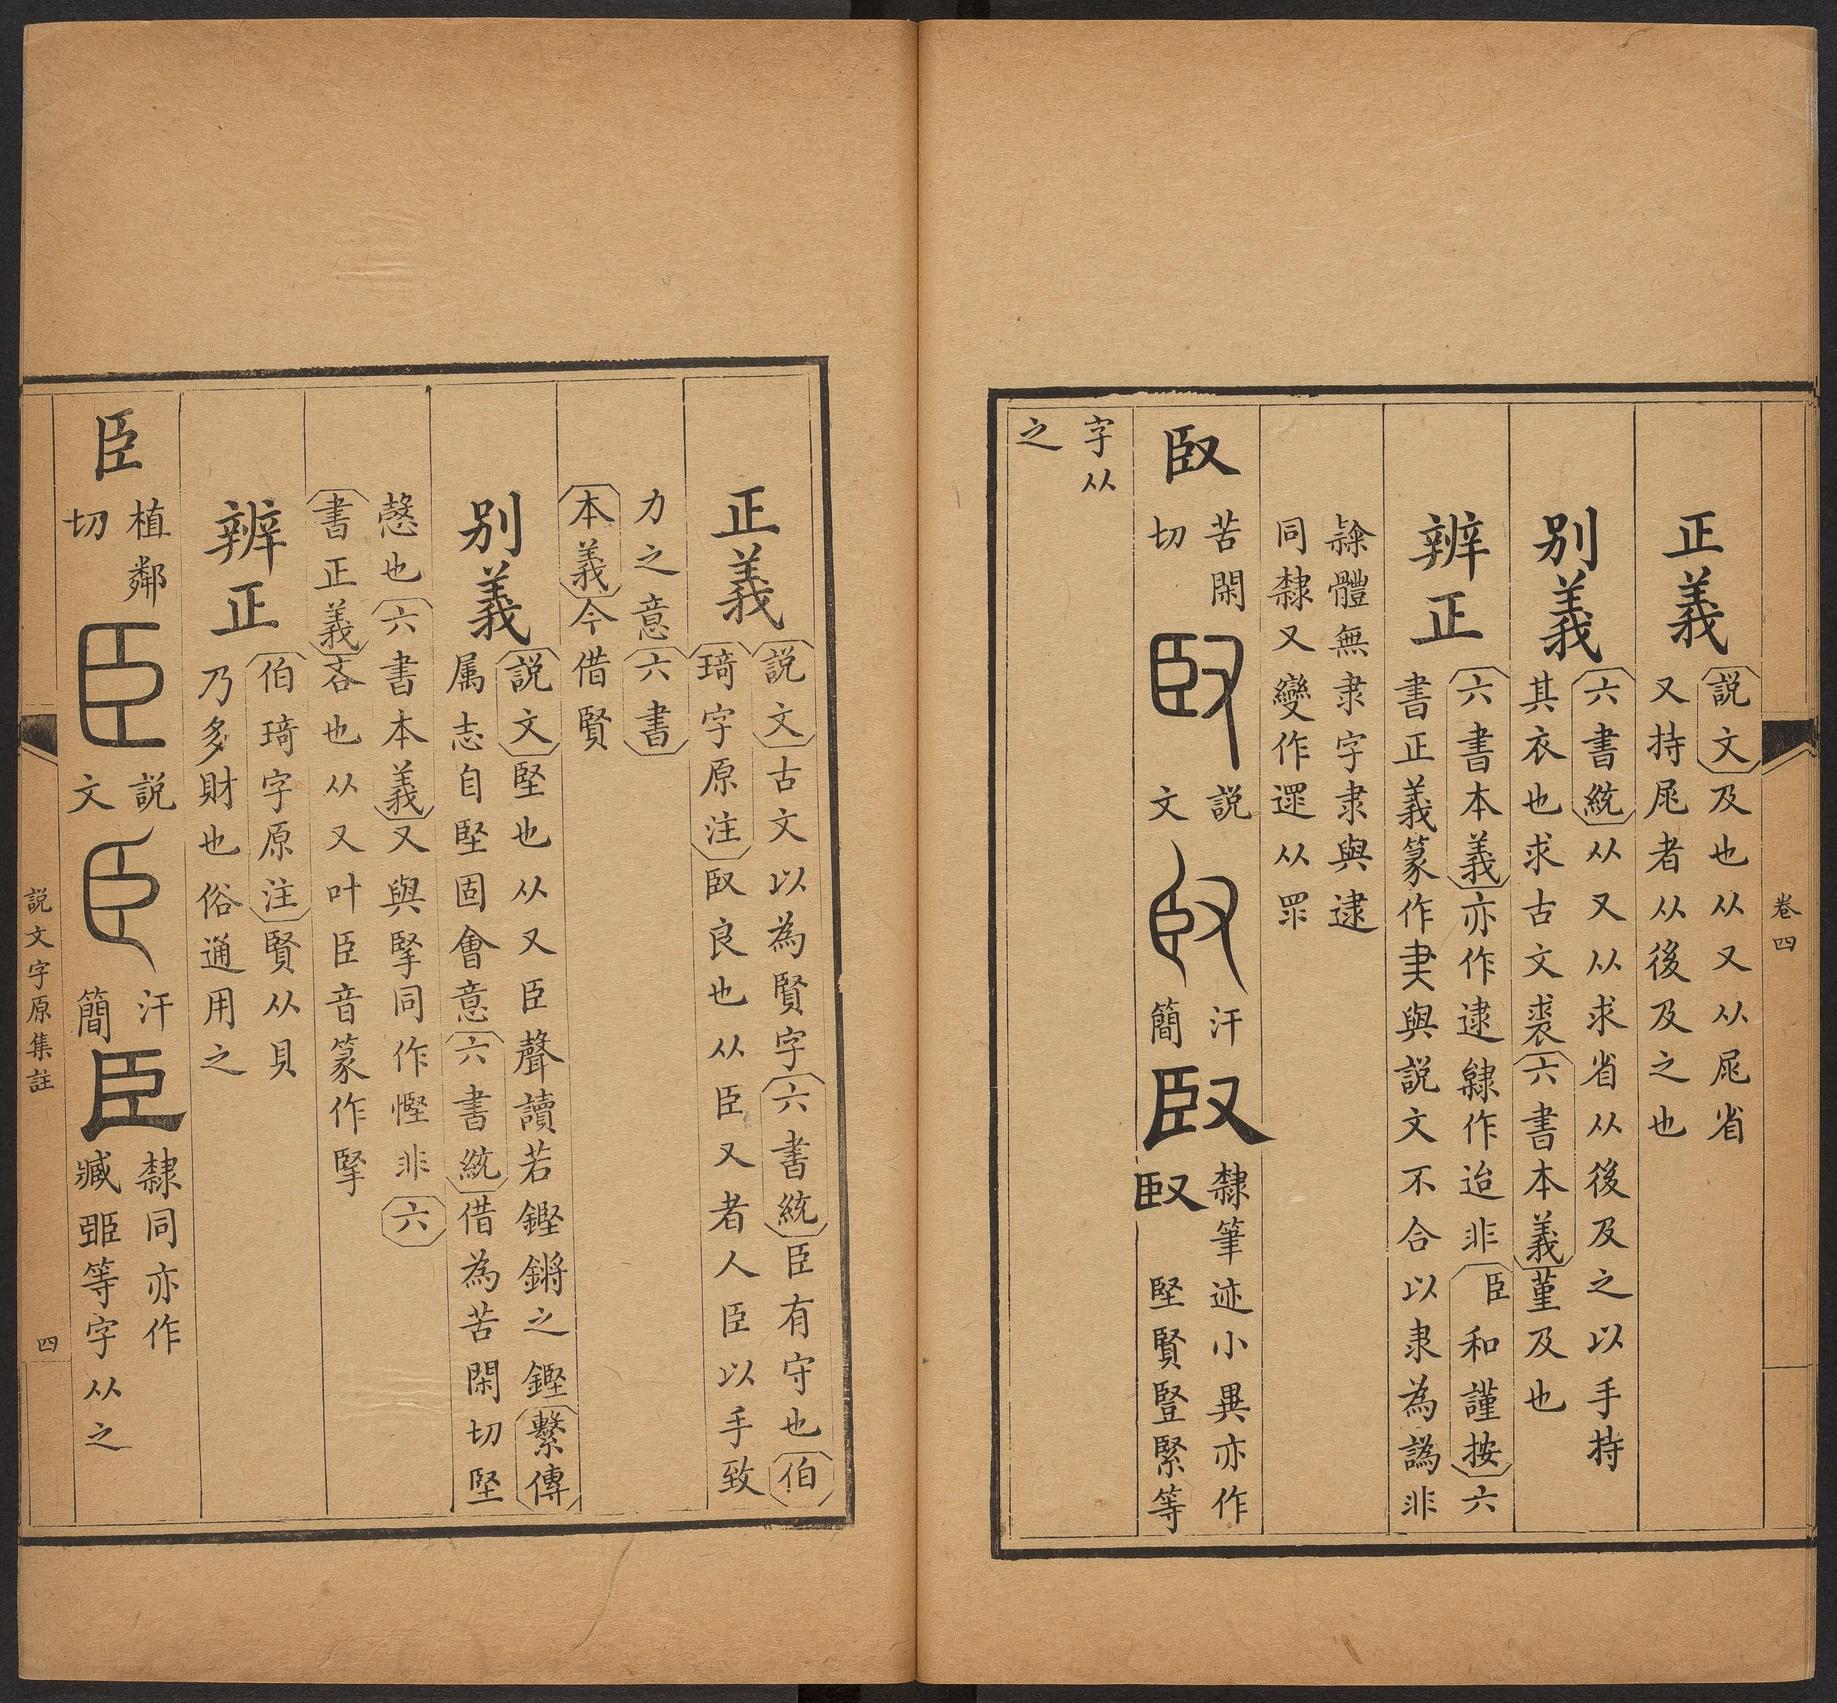 卷四
正義
説文及也从又从𡱒省
又持𡱒者从後及之也
别義
六書統从又从求省从後及之以手持
其衣也求古文裘六書本義堇及也
辨正
六書本義亦作逮隸作迨非臣和謹按六
書正義篆作 與説文不合以隶為譌非
隸體無隶字隶與逮
同隸又變作遝从眔
臤
苦閑
切
臤
説
文
臤
汗
簡
臤
隸筆迹小異亦作
臤 堅賢豎緊等
字从
之
正義
説文古文以為賢字六書統臣有守也伯
琦字原注臤良也从臣又者人臣以手致
力之意六書
本義今借賢
别義
説文堅也从又臣聲讀若鏗鏘之鏗繫傳
属志自堅固會意六書統借為苦閑切堅
愨也六書本義又與掔同作慳非六
書正義吝也从又叶臣音篆作掔
辨正
伯琦字原注賢从貝
乃多財也俗通用之
臣
植鄰
切
臣
説
文
臣
汗
簡
臣
隸同亦作
臧臦等字从之
説文字原集註
四